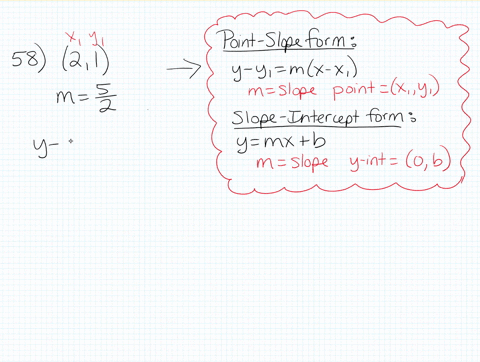 x₁ y₁
58) (2,1)
m = 5/2
y-
Point-Slope form:
y-y₁=m(x-x₁)
m=slope point=(x₁,y₁)
Slope-Intercept form:
y=mx+b
m=slope y-int=(0,b)